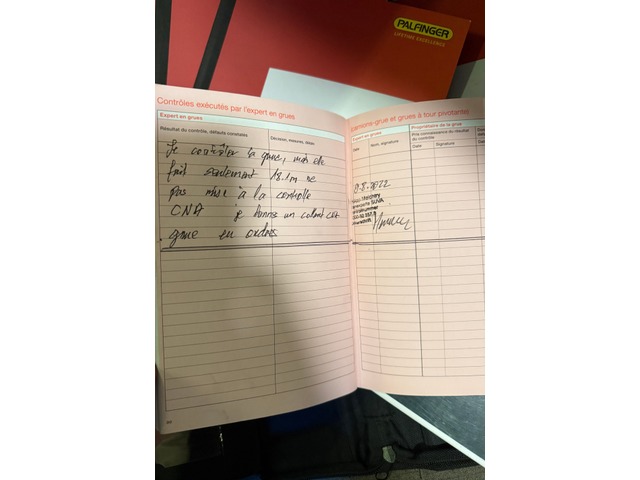 PALFINGER
LIFETIME EXCELLENCE
Contrôles exécutés par l'expert en grues
Expert en grues
Résultat du contrôle, défauts constatés
Décision, mesures, délais
Je contrôler la grue, mais elle
fait seulement 18.1m ne
pas mise à la contrôle
CNA je donne un colant cet
grue en ordres
(camions-grue et grues à tour pivotante)
Expert en grues
Propriétaire de la grue
Date
Nom, signature
Pris connaissance du résultat
du contrôle
Date
Signature
.8.2022
SUVA